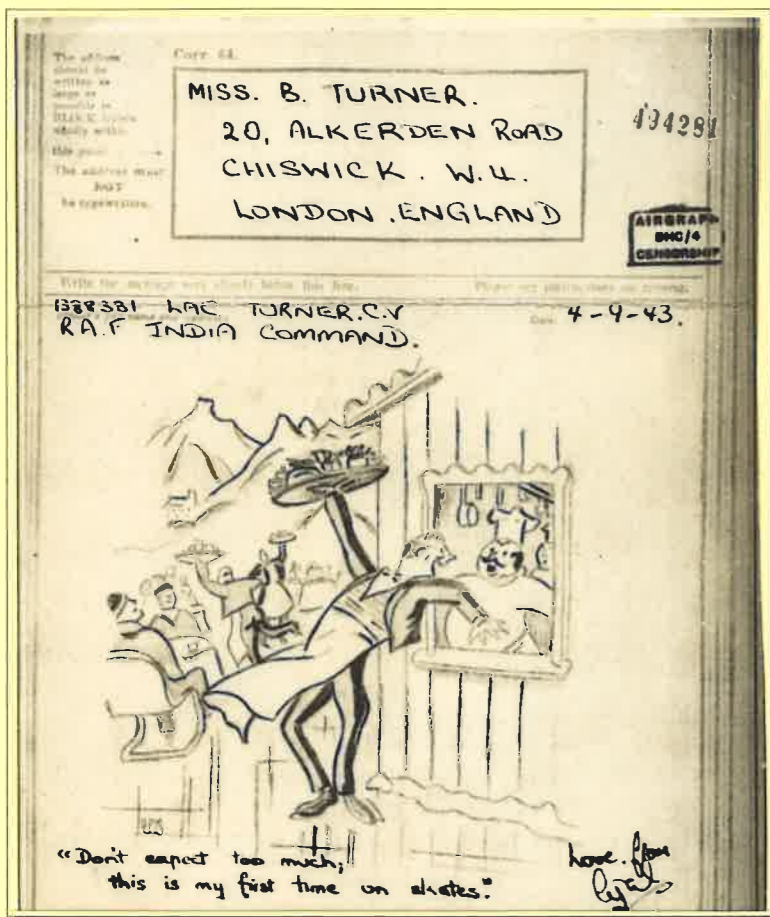 The address
should be
written as
large as
possible in
BLACK
wholly within
this panel
The address must
NOT
be typewritten.
Corr 64.
MISS. B. TURNER.
20, ALKERDEN ROAD
CHISWICK. W.4.
LONDON. ENGLAND
494281
AIRGRAPH
CENSORSHIP
Write the message very plainly below this line.
1388381 LAC TURNER. C.V
R.A.F INDIA COMMAND.
Date 4-9-43.
"Don't expect too much;
this is my first time on skates."
Love. from
Cyril